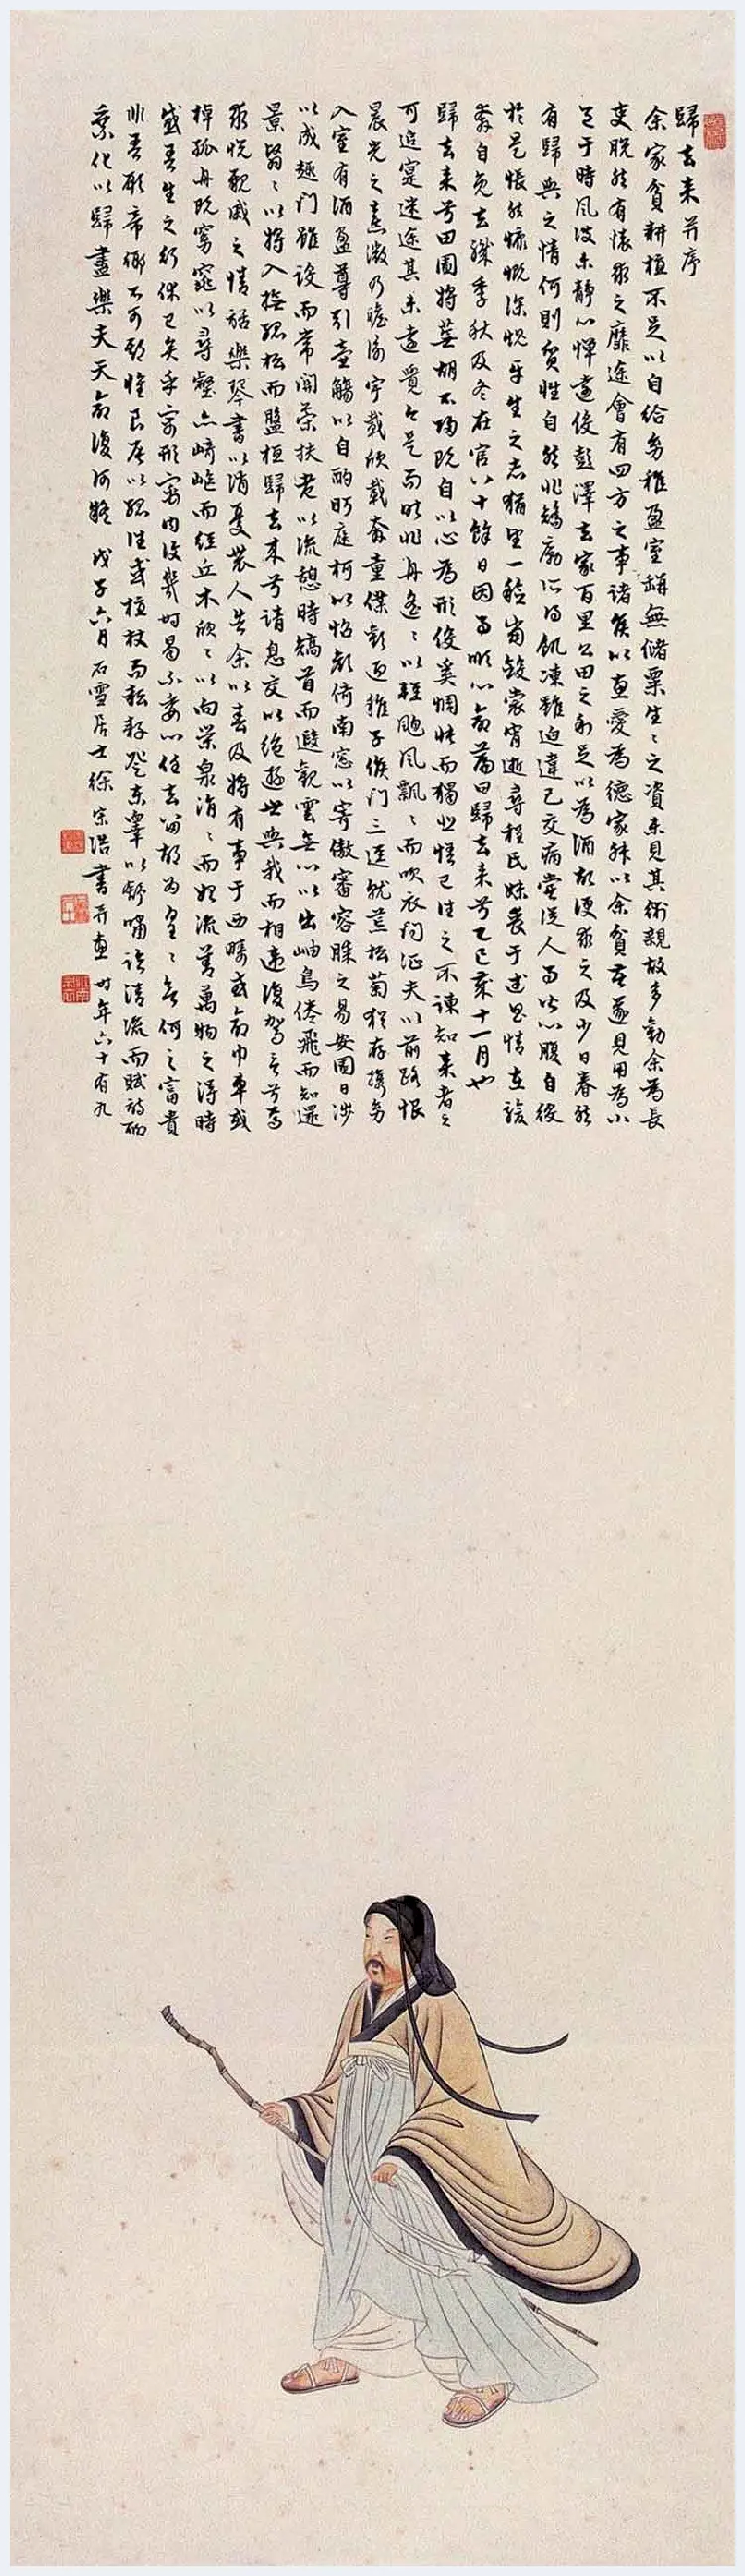 歸去来并序
余家貧耕植不足以自給幼稚盈室缾無儲粟生〻之資未見其術親故多勸余為長
吏脱然有懷求之靡途會有四方之事諸侯以惠愛為德家叔以余貧苦遂見用為小
邑于時風波未静心憚遠役彭澤去家百里公田之利足以為酒故便求之及少日眷然
有歸與之情何則質性自然非矯厲所得飢凍雖迫違己交病嘗從人事皆口腹自役
於是悵然慷慨深愧平生之志猶望一稔當斂裳宵逝尋程氏妹喪于武昌情在駿
奔自免去職季秋及冬在官八十餘日因事順心命篇曰歸去来兮乙巳歲十一月也
歸去来兮田園將蕪胡不歸既自以心為形役奚惆悵而獨悲悟已往之不諫知来者之
可追寔迷途其未遠覺今是而昨非舟遙〻以輕颺風飄〻而吹衣問征夫以前路恨
晨光之熹微乃瞻衡宇載欣載奔童僕歡迎稚子候門三逕就荒松菊猶存攜幼
入室有酒盈尊引壺觴以自酌眄庭柯以怡顏倚南窗以寄傲審容膝之易安園日涉
以成趣門雖設而常關策扶老以流憩時矯首而遐觀雲無心以出岫鳥倦飛而知還
景翳〻以將入撫孤松而盤桓歸去来兮請息交以絕遊世與我而相違復駕言兮焉
求悦親戚之情話樂琴書以消憂農人告余以春及將有事于西疇或命巾車或
棹孤舟既窈窕以尋壑亦崎嶇而經丘木欣〻以向榮泉涓〻而始流善萬物之得時
感吾生之行休已矣乎寓形宇内復幾時曷不委心任去留胡為皇〻欲何之富貴
非吾願帝鄉不可期懷良辰以孤往或植杖而耘耔登東皋以舒嘯臨清流而賦詩聊
乘化以歸盡樂夫天命復何疑 戊子六月石雪居士徐宗浩書并畫 時年六十有九